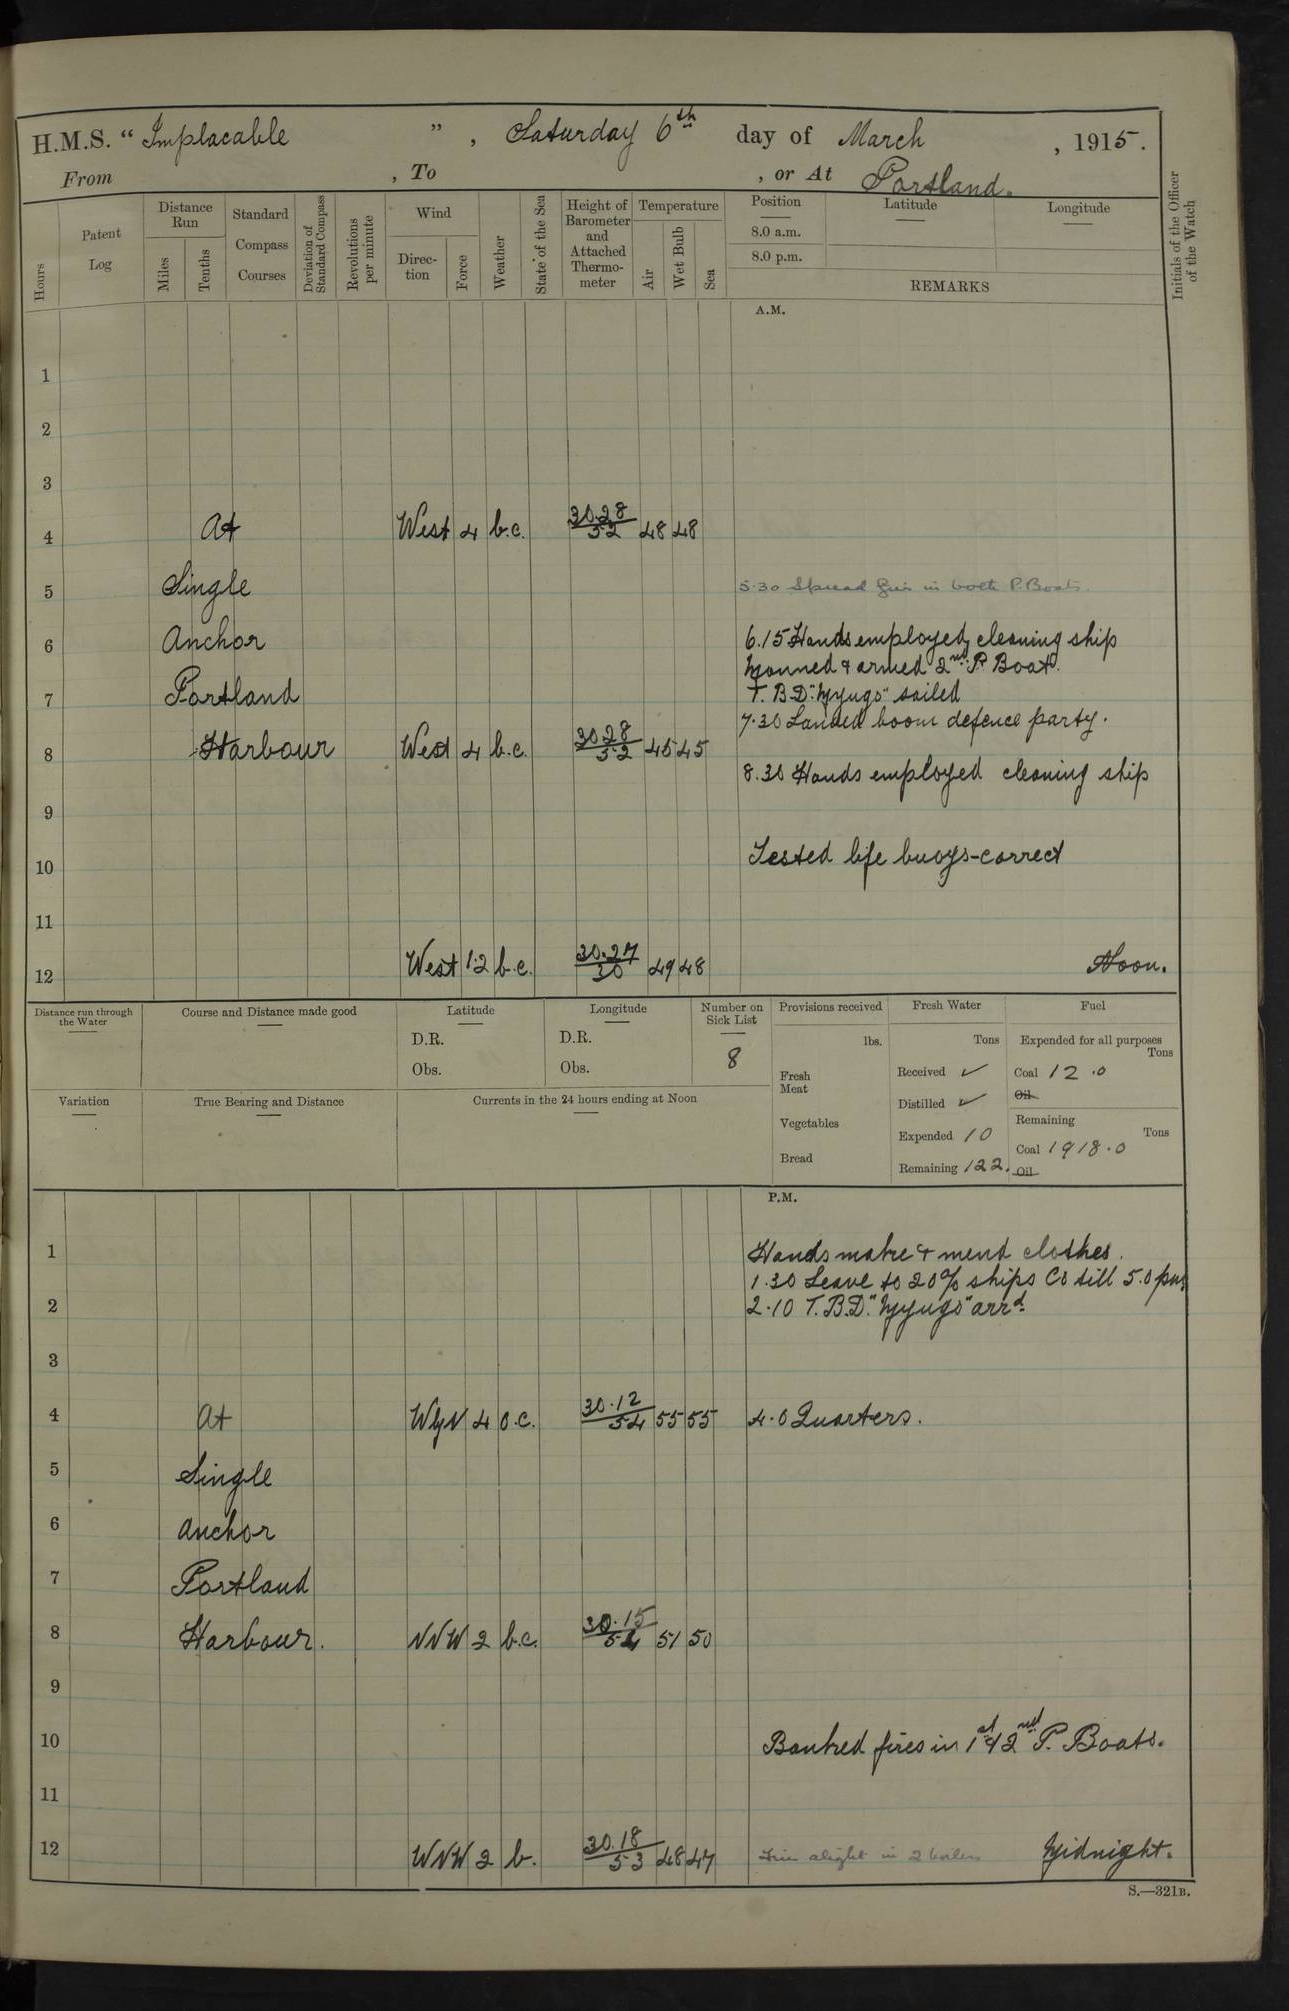 H.M.S. “ Implacable ” , Saturday 6th day of March , 1915.
From , To , or At Portland.
Hours
Patent Log
Distance Run
Miles
Tenths
Standard Compass Courses
Deviation of Standard Compass
Revolutions per minute
Wind
Direc-tion
Force
Weather
State of the Sea
Height of Barometer and Attached Thermo-meter
Temperature
Air
Wet Bulb
Sea
Position
8.0 a.m.
8.0 p.m.
Latitude
Longitude
REMARKS
Initials of the Officer of the Watch
A.M.
1
2
3
4 At West 4 b.c. 30.28 52 48 48
5 Single 5.30 Spread fires in both P. Boats.
6 Anchor 6.15 Hands employed cleaning ship
Manned & armed 2nd P. Boat.
7 Portland T.B.D. sailed
7.30 Landed boom defence party.
8 Harbour West 4 b.c. 30.28 52 45 45
8.30 Hands employed cleaning ship
9
10 Tested life buoys-correct
11
12 West 1.2 b.c. 30.27 49 48 Noon.
Distance run through the Water
Course and Distance made good
Latitude
D.R.
Obs.
Longitude
D.R.
Obs.
Number on Sick List
8
Provisions received
lbs.
Fresh Meat
Vegetables
Bread
Fresh Water
Tons
Received ✓
Distilled ✓
Expended 10
Remaining 122.
Fuel
Expended for all purposes
Tons
Coal 12.0
Oil
Remaining
Tons
Coal 1918.0
Oil
Variation
True Bearing and Distance
Currents in the 24 hours ending at Noon
P.M.
1 Hands make & mend clothes.
1.30 Leave to 20% ships Co till 5.0 pm
2 2.10 T.B.D. arrd.
3
4 At WyN 4 o.c. 30.12 54 55 55 4.0 Quarters.
5 Single
6 anchor
7 Portland
8 Harbour. NNW 2 b.c. 30.15 54 51 50
9
10 Banked fires in 1st & 2nd P. Boats.
11
12 WNW 2 b. 30.18 53 48 47 Fires alight in 2 boilers Midnight.
S.—321B.